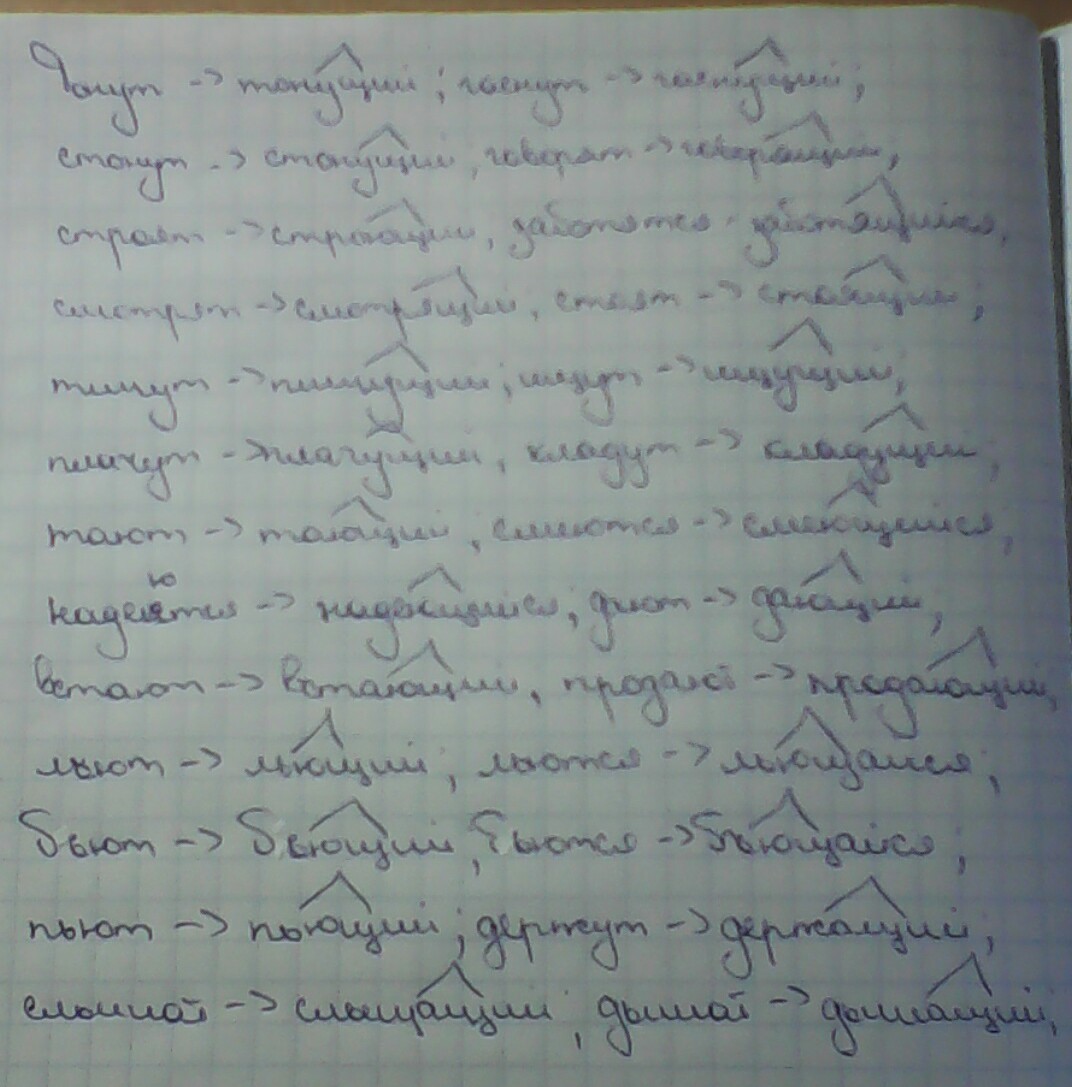 Тонут -> тонущий; гаснут -> гаснущий;
стонут -> стонущий, говорят -> говорящий,
строят -> строющий, заботятся - заботящийся,
смотрят -> смотрящий, стоят -> стоящий;
пишут -> пишущий; ищут -> ищущий,
плачут -> плачущий, кладут -> кладущий,
тают -> тающий, смеются -> смеющейся,
надеются -> надеющиеся, дают -> дающий,
встают -> встающий, продают -> продающий,
льют -> льющий; льются -> льющайся;
бьют -> бьющий, бьются -> бьющайся;
пьют -> пьющий; держут -> держащий;
слышат -> слыщащий, дышат -> дышащий,